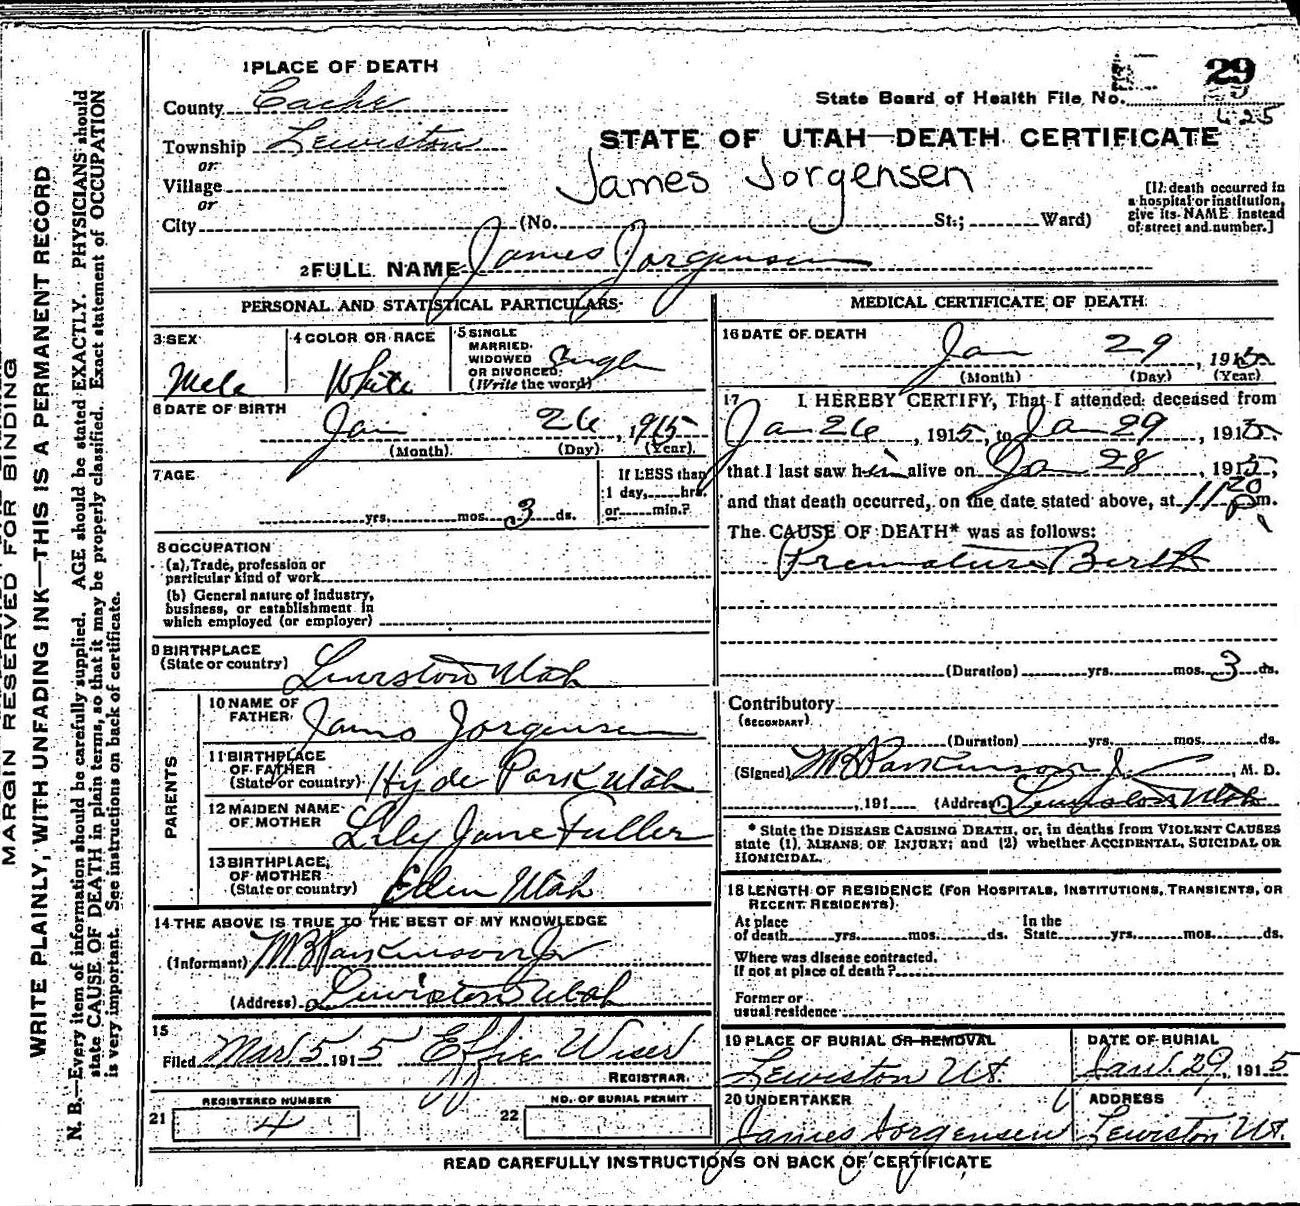 MARGIN RESERVED FOR BINDING
WRITE PLAINLY, WITH UNFADING INK—THIS IS A PERMANENT RECORD
N. B.—Every item of information should be carefully supplied. AGE should be stated EXACTLY. PHYSICIANS should
state CAUSE OF DEATH in plain terms, so that it may be properly classified. Exact statement of OCCUPATION
is very important. See instructions on back of certificate.
1 PLACE OF DEATH
29
County Cache
State Board of Health File No.
425
Township Lewiston
STATE OF UTAH—DEATH CERTIFICATE
or
James Jorgensen
Village
or
City (No. St.; Ward)
[If death occurred in
a hospital or institution,
give its NAME instead
of street and number.]
2 FULL NAME James Jorgensen
PERSONAL AND STATISTICAL PARTICULARS
3 SEX
Male
4 COLOR OR RACE
White
5 SINGLE
MARRIED
WIDOWED
OR DIVORCED
(Write the word)
Single
6 DATE OF BIRTH
Jan 26, 1915
(Month) (Day) (Year)
7 AGE
yrs. mos. 3 ds.
If LESS than
1 day, hrs.
or min.?
8 OCCUPATION
(a) Trade, profession or
particular kind of work
(b) General nature of industry,
business, or establishment in
which employed (or employer)
9 BIRTHPLACE
(State or country) Lewiston Utah
PARENTS
10 NAME OF
FATHER James Jorgensen
11 BIRTHPLACE
OF FATHER
(State or country) Hyde Park Utah
12 MAIDEN NAME
OF MOTHER Lily Jane Fuller
13 BIRTHPLACE
OF MOTHER
(State or country) Eden Utah
14 THE ABOVE IS TRUE TO THE BEST OF MY KNOWLEDGE
(Informant) W B Parkinson Jr
(Address) Lewiston Utah
15
Filed Mar 5 1915 Effie Wiser
REGISTRAR.
21 REGISTERED NUMBER
4
22 NO. OF BURIAL PERMIT
MEDICAL CERTIFICATE OF DEATH
16 DATE OF DEATH
Jan 29, 1915
(Month) (Day) (Year)
17 I HEREBY CERTIFY, That I attended deceased from
Jan 26, 1915, to Jan 29, 1915,
that I last saw him alive on Jan 28, 1915,
and that death occurred, on the date stated above, at 11 20 P m.
The CAUSE OF DEATH* was as follows:
Premature Birth
(Duration) yrs. mos. 3 ds.
Contributory
(SECONDARY)
(Duration) yrs. mos. ds.
(Signed) W B Parkinson Jr, M. D.
, 191 (Address) Lewiston Utah
* State the DISEASE CAUSING DEATH, or, in deaths from VIOLENT CAUSES
state (1) MEANS OF INJURY; and (2) whether ACCIDENTAL, SUICIDAL OR
HOMICIDAL.
18 LENGTH OF RESIDENCE (FOR HOSPITALS, INSTITUTIONS, TRANSIENTS, OR
RECENT RESIDENTS).
At place In the
of death yrs. mos. ds. State yrs. mos. ds.
Where was disease contracted,
if not at place of death?
Former or
usual residence
19 PLACE OF BURIAL OR REMOVAL
Lewiston Ut.
DATE OF BURIAL
Jan. 29, 1915
20 UNDERTAKER
James Jorgensen
ADDRESS
Lewiston Ut.
READ CAREFULLY INSTRUCTIONS ON BACK OF CERTIFICATE